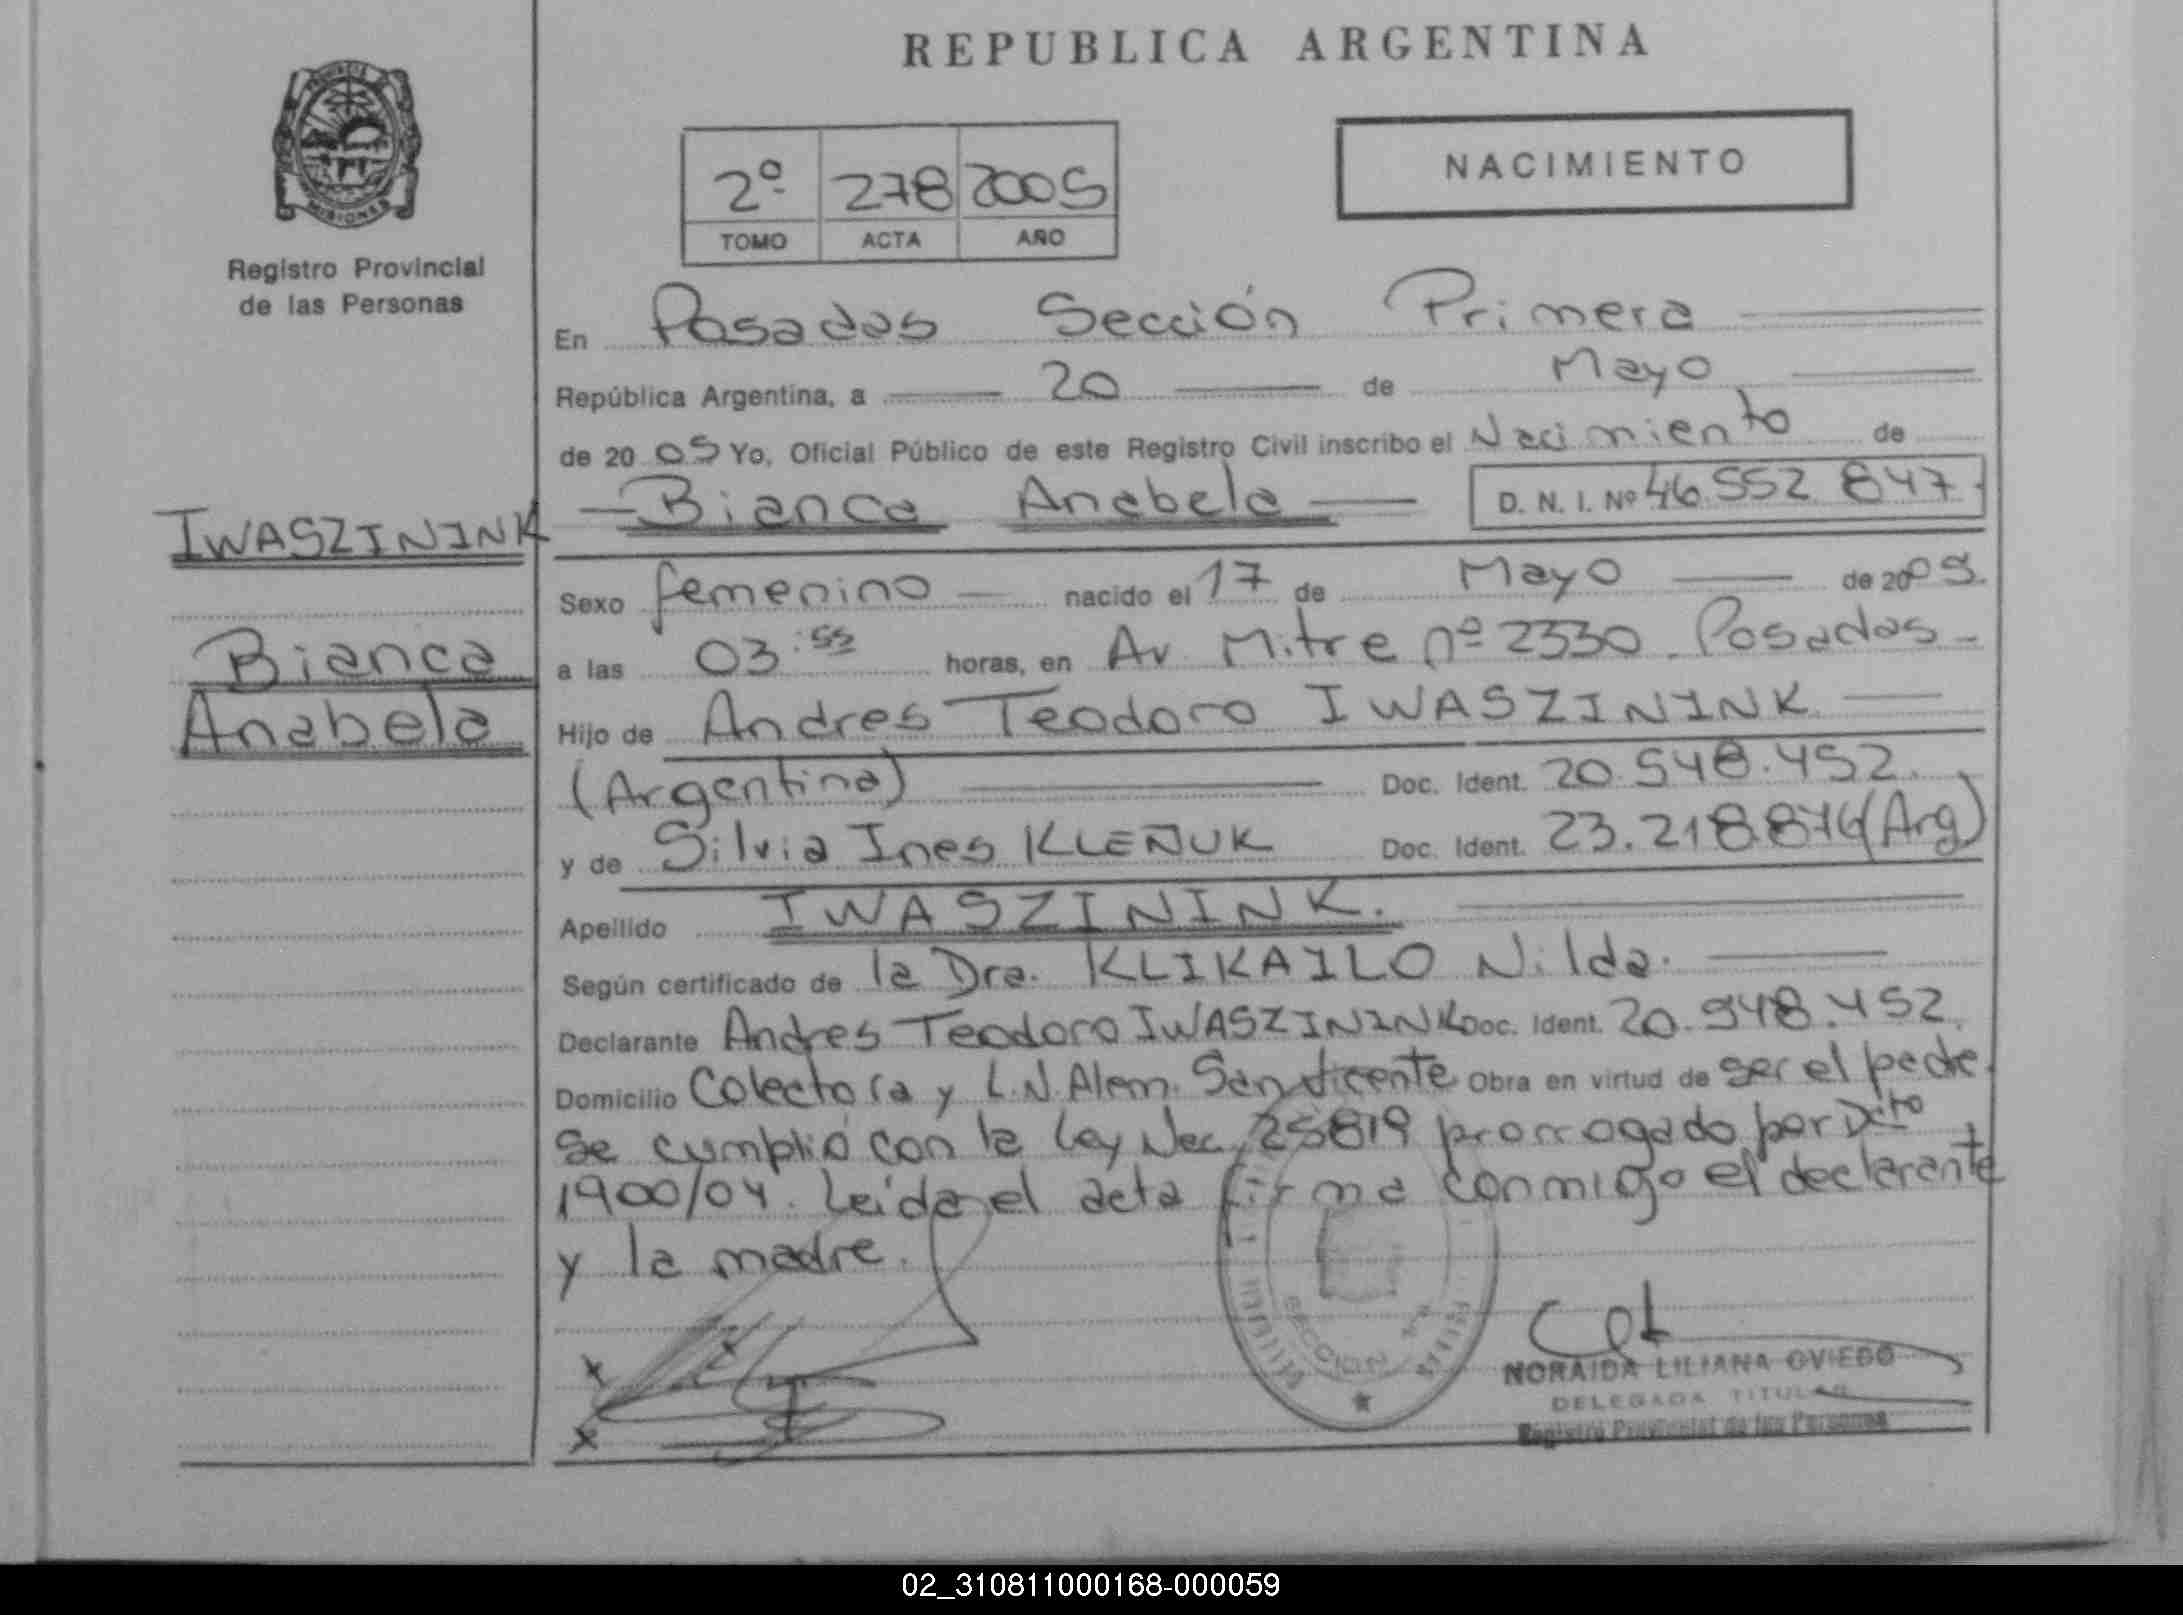 REPUBLICA ARGENTINA
MISIONES
Registro Provincial
de las Personas
2º 278 2005
TOMO ACTA AÑO
NACIMIENTO
En Posadas Sección Primera
República Argentina, a 20 de Mayo
de 2005 Yo, Oficial Público de este Registro Civil inscribo el Nacimiento de
Bianca Anabela D. N. I. Nº 46.552 847
IWASZININK
Bianca
Anabela
Sexo femenino nacido el 17 de Mayo de 2005.
a las 03:55 horas, en Av. Mitre nº 2330. Posadas-
Hijo de Andres Teodoro IWASZININK
(Argentina) Doc. Ident. 20.548.452.
y de Silvia Ines KLEÑUK Doc. Ident. 23.218.876 (Arg)
Apellido IWASZININK.
Según certificado de la Dra. KLIKAILO Nilda.
Declarante Andres Teodoro IWASZININK Doc. Ident. 20.548.452.
Domicilio Colectora y L.N. Alem. San Vicente Obra en virtud de ser el padre.
Se cumplió con la Ley Nac. 25819 prorrogado por Dcto
1900/04. Leida el acta firma conmigo el declarante
y la madre.
SECCION
NORAIDA LILIANA OVIEDO
DELEGADA TITULAR
Registro Provincial de las Personas
02_310811000168-000059